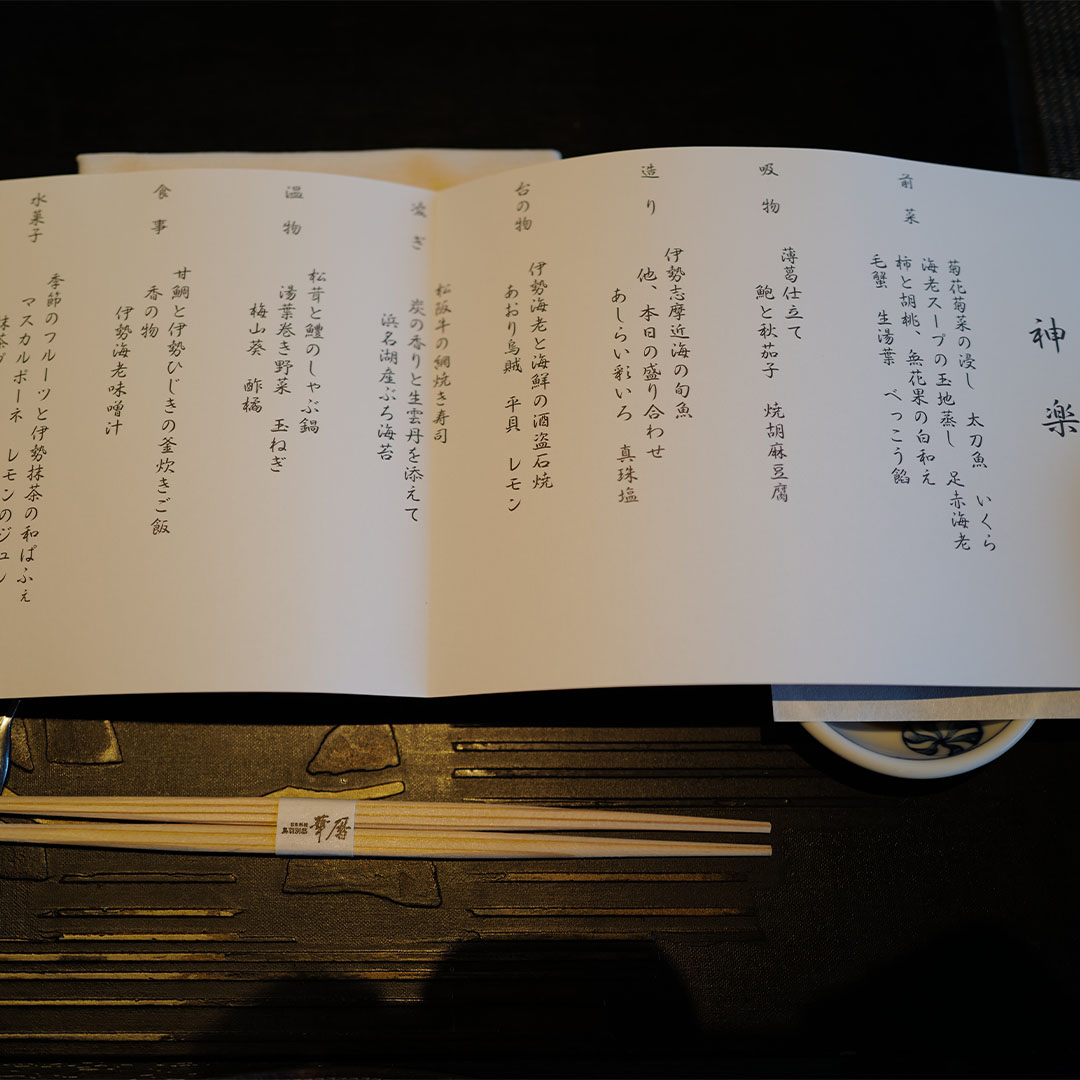 神楽
前菜
菊花菊菜の浸し 太刀魚 いくら
海老スープの玉地蒸し 足赤海老
柿と胡桃、無花果の白和え
毛蟹 生湯葉 べっこう餡
吸物
薄葛仕立て
鮑と秋茄子 焼胡麻豆腐
造り
伊勢志摩近海の旬魚
他、本日の盛り合わせ
あしらい彩いろ 真珠塩
台の物
伊勢海老と海鮮の酒盗石焼
あおり烏賊 平貝 レモン
凌ぎ
松阪牛の網焼き寿司
炭の香りと生雲丹を添えて
浜名湖産ぶろ海苔
温物
松茸と鱧のしゃぶ鍋
湯葉巻き野菜 玉ねぎ
梅山葵 酢橘
食事
甘鯛と伊勢ひじきの釜炊きご飯
香の物
伊勢海老味噌汁
水菓子
季節のフルーツと伊勢抹茶の和ぱふぇ
マスカルポーネ レモンのジュレ
華暦